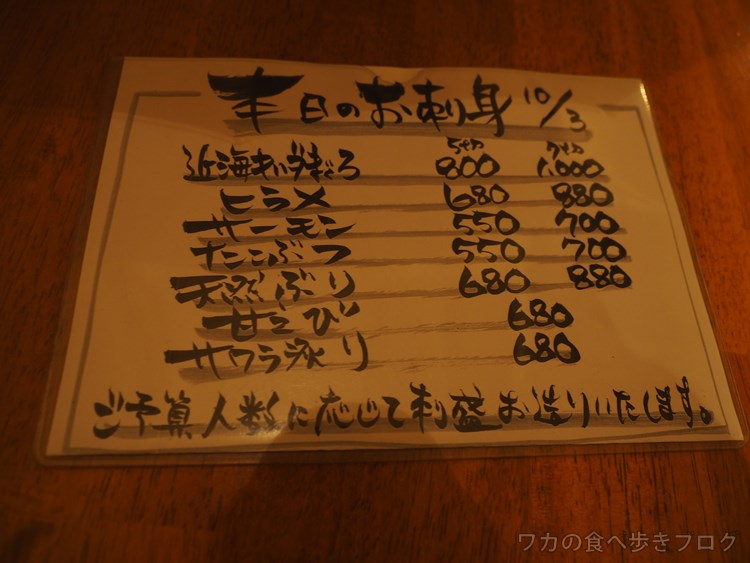 本日のお刺身 10/3
5切 7切
近海 まぐろ 800 1,000
ヒラメ 680 880
サーモン 550 700
たこぶつ 550 700
天然ぶり 680 880
甘えび 680
サワラ炙り 680
ご予算人数に応じて刺盛お造りいたします。
ワカの食べ歩きブログ